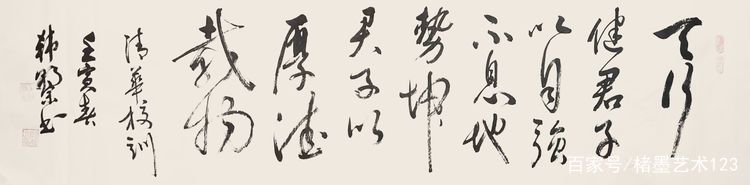 天行
健君子
以自強
不息地
勢坤
君子以
厚德
載物
清華校訓
壬寅春
韩 书
百家号/楮墨艺术123